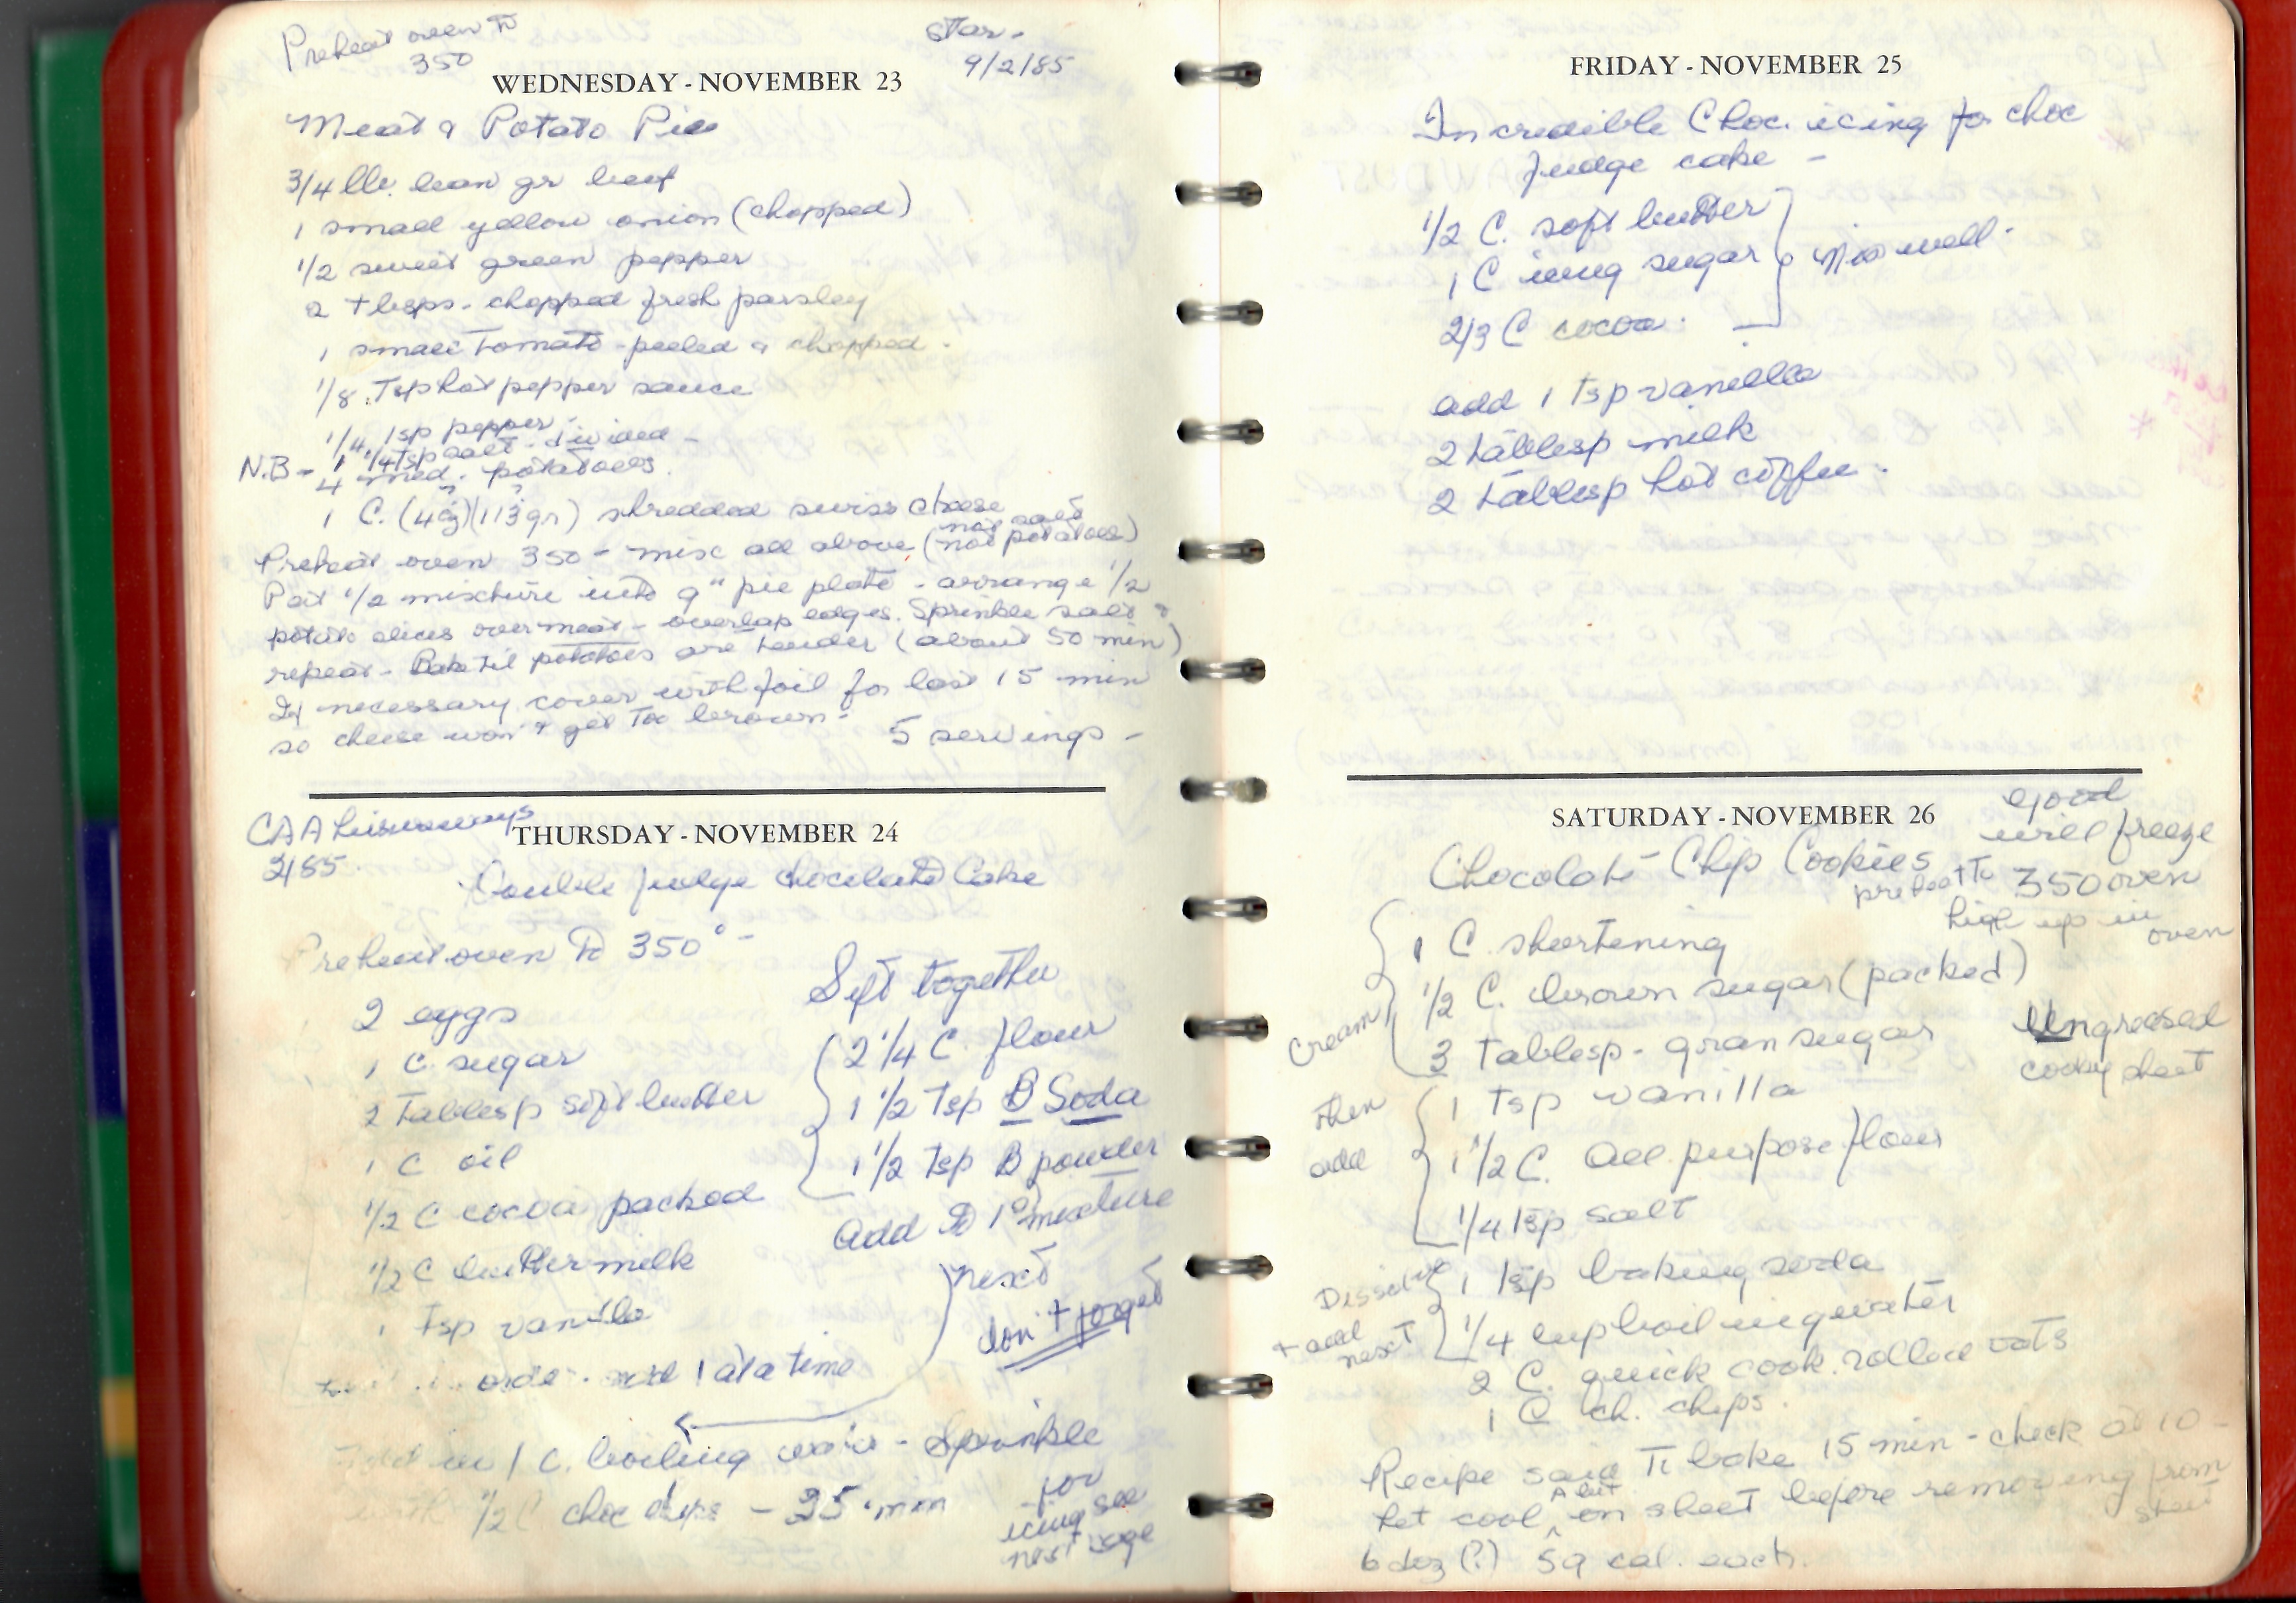 Preheat oven to
350
Star -
9/2/85
WEDNESDAY - NOVEMBER 23
Meat & Potato Pie
3/4 lb. lean gr beef
1 small yellow onion (chopped)
1/2 sweet green pepper
2 tbsps - chopped fresh parsley
1 small tomato - peeled & chopped.
1/8 Tsp hot pepper sauce
1/4 tsp pepper -
1 1/4 tsp salt - divided -
N.B - 4 med. potatoes.
1 C. (4oz) (113 gr) shredded swiss cheese
Preheat oven 350 - misc all above (not potatoes)
not salt
Put 1/2 mixture into 9" pie plate - arrange 1/2
potato slices over meat - overlap edges. Sprinkle salt &
repeat - Bake til potatoes are tender (about 50 min)
If necessary cover with foil for last 15 min
so cheese won't get too brown -
5 servings -
CAA Leisureways
2/85.
THURSDAY - NOVEMBER 24
Double fudge chocolate Cake
Preheat oven to 350° -
2 eggs
1 C sugar
2 Tablesp soft butter
1 C oil
1/2 C cocoa packed
1/2 C buttermilk
1 tsp vanilla
order - add 1 at a time
Sift together
2 1/4 C. flour
1 1/2 tsp B Soda
1 1/2 tsp B powder
Add to 1° mixture
next
don't forget
Add in 1 C. boiling water - Sprinkle
with 1/2 C choc chips - 35 min
for
icing see
next page
FRIDAY - NOVEMBER 25
Incredible Choc. icing for choc
fudge cake -
1/2 C. soft butter
1 C icing sugar
2/3 C cocoa.
Mix well.
add 1 tsp vanilla
2 tablesp milk
2 tablesp hot coffee.
SATURDAY - NOVEMBER 26
good
will freeze
Chocolate Chip Cookies
preheat to 350 oven
high up in
oven
1 C. shortening
1/2 C. brown sugar (packed)
3 tablesp - gran sugar
Cream
Ungreased
cooky sheet
then
add
1 tsp vanilla
1 1/2 C. all purpose flour
1/4 tsp salt
Dissolve
+ add
next
1 tsp baking soda
1/4 cup boiling water
2 C. quick cook. rolled oats
1 C ch. chips.
Recipe said to bake 15 min - check at 10 -
let cool a bit on sheet before removing from
sheet
6 doz (?) 59 cal. each.